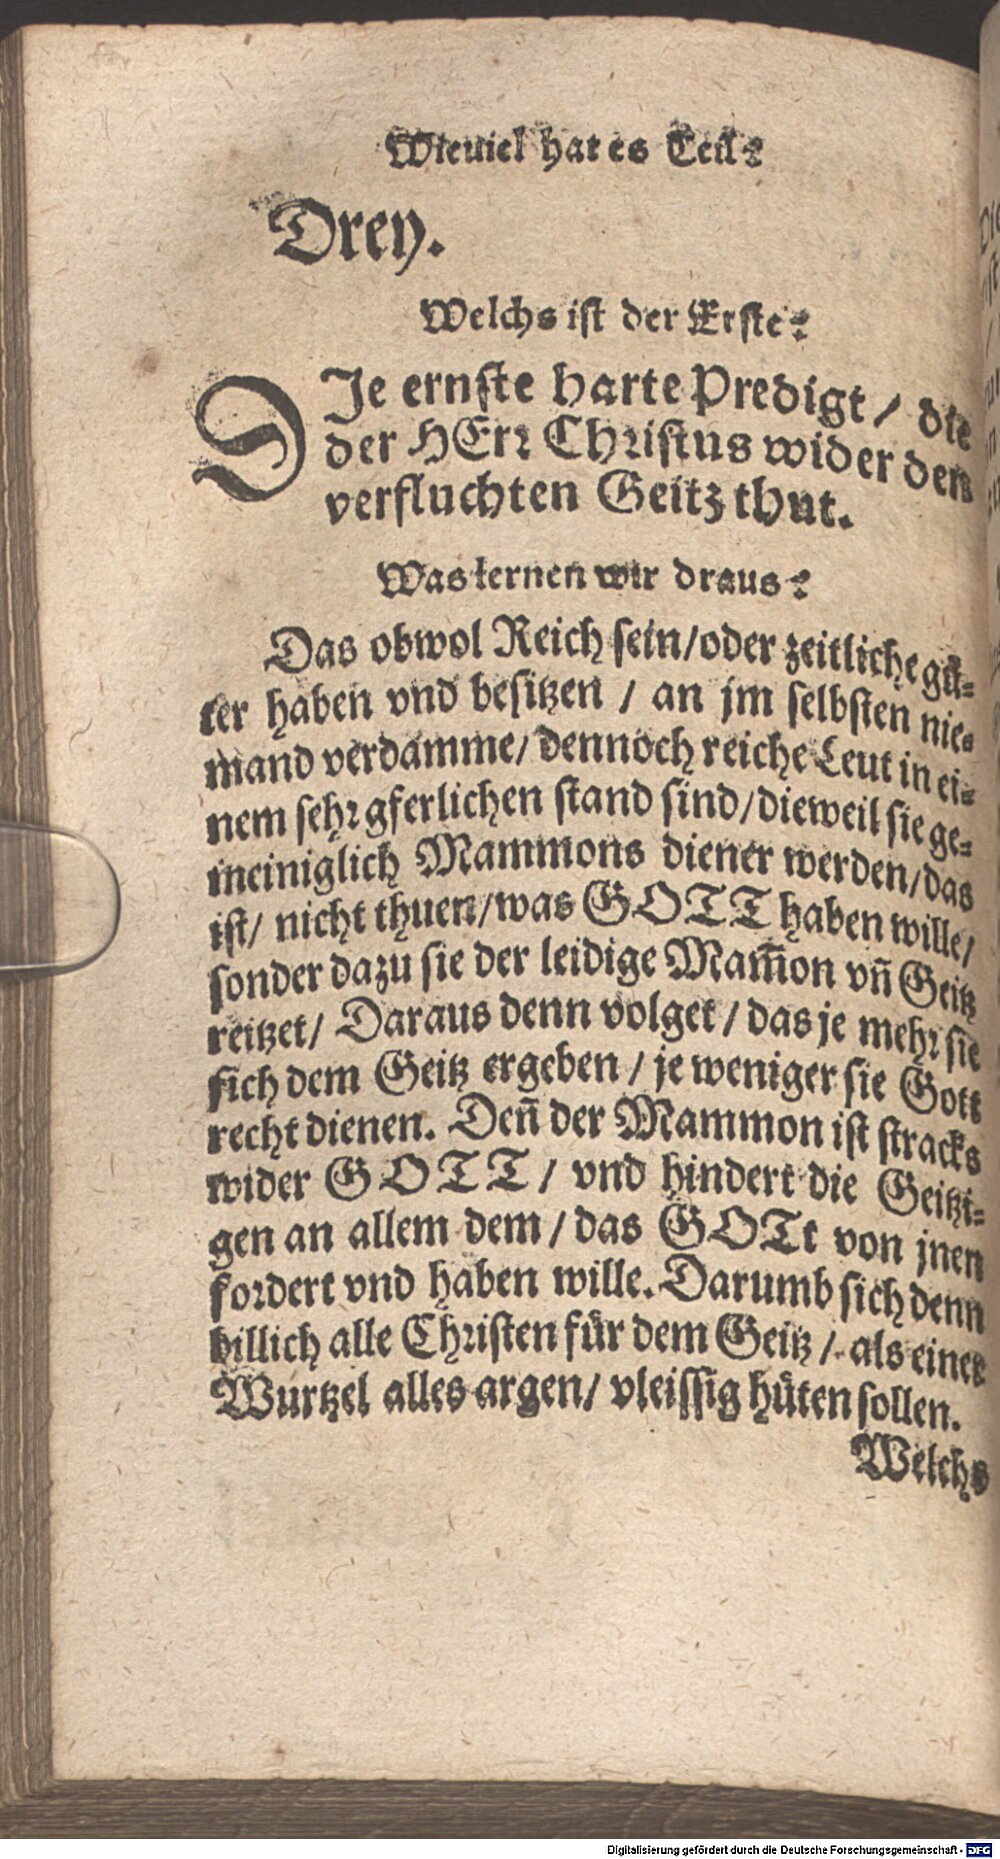 Wieuiel hat es Teil?
Drey.
Welchs ist der Erste?
DIe ernste harte Predigt / die
der HErr Christus wider den
verfluchten Geitz thut.
Was lernen wir draus?
Das obwol Reich sein/oder zeitliche gü-
ter haben vnd besitzen / an jm selbsten nie-
mand verdamme/ dennoch reiche Leut in ei-
nem sehr gferlichen stand sind/dieweil sie ge-
meiniglich Mammons diener werden/das
ist/ nicht thuen/was GOTT haben wille/
sonder dazu sie der leidige Mam̄on vn̄ Geitz
reitzet/ Daraus denn volget / das je mehr sie
sich dem Geitz ergeben / je weniger sie Gott
recht dienen. Den̄ der Mammon ist stracks
wider GOTT / vnd hindert die Geitzi-
gen an allem dem / das GOTt von jnen
fordert vnd haben wille. Darumb sich denn
billich alle Christen für dem Geitz / als einer
Wurtzel alles argen/ vleissig hüten sollen.
Welchs
Digitalisierung gefördert durch die Deutsche Forschungsgemeinschaft - DFG